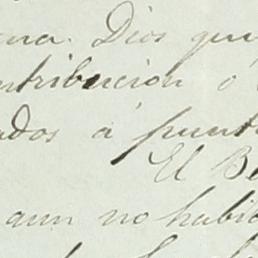 Dios que
ntribucion ó
ados á punt
El Be
aun no habi